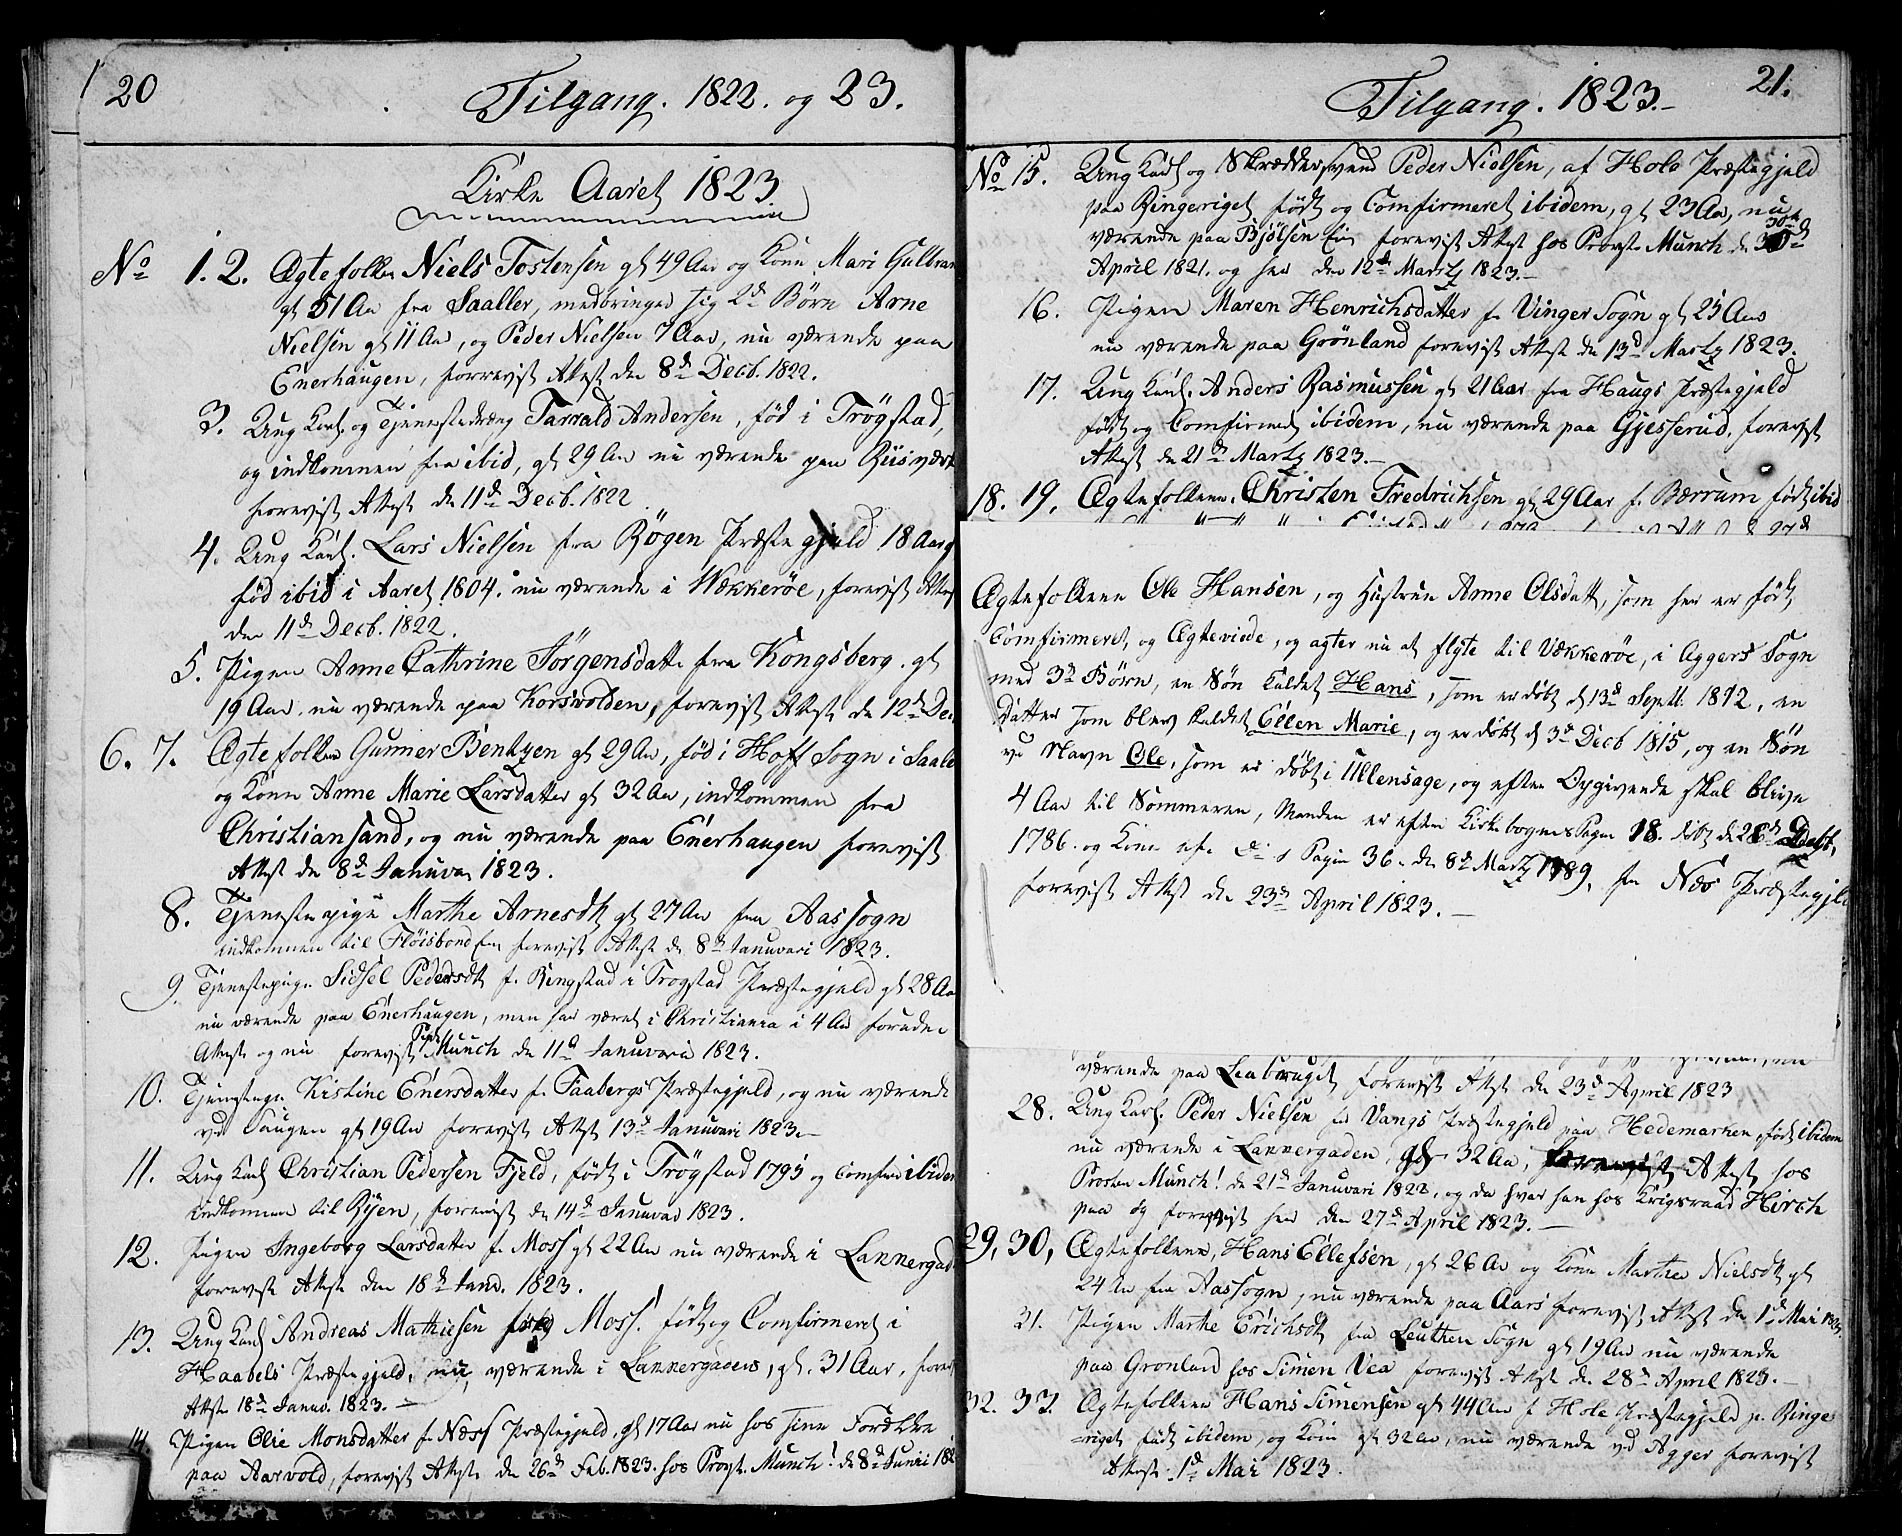 20
Tilgang. 1822. og 23.
Kirke Aaret 1823
No 1. 2. Ægtefolken Niels Tostensen gl 49 Aar og Kone Mari Gulbran
gl 51 Aar fra Saaller, medbringer sig 2de Børn Arne
Nielsen gl 11 Aar, og Peder Nielsen 7 Aar, nu værende paa
Enerhaugen, forevist Attest den 8de Decb. 1822.
3. Ung Karl og Tjenestedreng Tarrald Andersen, fød i Trøgstad,
og indkommen fra ibid, gl 29 Aar nu værende paa Riisværk
forevist Attest de 11de Decb. 1822
4. Ung Karl. Lars Nielsen fra Røgen Præstegjeld 18 Aar g
fød ibid i Aaret 1804. nu værende i Wækkerøe, forevist Attest
den 11de Decb. 1822.
5. Pigen Anne Cathrine Jørgensdatt fra Kongsberg. gl
19 Aar. nu værende paa Korsvolden, forevist Attest de 12de Dec
6. 7. Ægtefolken Gunner Bentzen gl 29 Aar, fød i Hoff Sogn i Saal
og Kone Anne Marie Larsdatter gl 32 Aar, indkommen fra
Christiansand, og nu værende paa Enerhaugen forevist
Attest de 8de Januar 1823.
8. Tjenestepige Marthe Arnesdt gl 27 Aar fra Aas Sogn
indkommen til Fløisbonden forevist Attest de 8de Januari 1823.
9. Tjenestepige Sidsel Pedersdt f. Ringstad i Trogstad Præstegjeld gl 28 Aar
nu værende paa Enerhaugen, men har været i Christiania i 4 Aar foruden
Attest og nu forevist Munch de 11de Januari 1823.
10. Tjenestepige Kistine Enersdatter f. Faabergs Præstegjeld, og nu værende
ved Haugen gl 19 Aar forevist Attest 13de Januari 1823.
11. Ung Karl Christian Pedersen Fjeld, født i Trøgstad 1795 og Comfir ibidem
indkommen til Ryen, forevist de 14de Januar 1823.
12. Pigen Ingeborg Larsdatter f. Moss gl 22 Aar nu værende i Lannergad
forevist Attest den 18de Janu. 1823.
13. Ung Karl Andreas Mathiesen Moss. født og Comfirmeret i
Haabels Præstegjeld, nu, værende i Lannergaden, gl. 31 Aar, forev
Attest 18de Januv. 1823.
14 Pigen Olie Monsdatter f. Næss Præstegjeld, gl 17 Aar nu hos sine Forældre
paa Aarvold, forevist Attest de 26de Feb. 1823. hos Provst. Munch! de 8de Junii 182
21.
Tilgang. 1823.
No 15. Ung Karl og Skræddersvend Peder Nielsen, af Hole Præstegjeld
paa Ringeriget født og Comfirmeret ibidem, gl 23 Aar, nu
værende paa Bjølsen Eie forevist Attest hos Provst Munch d 30te
April 1821. og her den 12de Martz 1823.
16. Pigen Maren Henrichsdatter f. Vinger Sogn gl 25 Aar
nu værende paa Grønland forevist Attest de 13de Martz 1823.
17. Ung Karl. Anders Rasmussen gl 21 Aar fra Haugs Præstegjeld
født og Comfirmeret ibidem, nu værende paa Gjesserud, forevist
Attest de 21de Martz 1823.
18. 19. Ægtefolkene. Christen Fredrichsen gl 29 Aar f. Bærrum født ibid
Ægtefolkene Ole Hansen, og Hustrue Anne Olsdatt, som her er født,
Comfirmeret, og Ægteviede, og agter nu at flyte til Vækkerøe, i Aggers Sogn
med 3de Børn, en Søn kaldet Hans, som er døbt d 13de Septb. 1812, en
Datter som blev kaldet Ellen Marie, og er døbt d 3de Decb 1815, og en Søn
ve Navn Ole, som er døbt i Ullensage, og efter Opgivende skal blive
4 Aar til Sommeren, Manden er efter Kirkebogens Pagin 18. døbt de 28de
1786. og Kone Pagin 36. de 8de Martz 1789, fra Næs Præstegjeld
forevist Attest den 23de April 1823.
værende paa Leabruget forevist Attest den 23de April 1823
28. Ung Karl. Peder Nielsen fra Vangs Præstegjeld paa Hedemarken, født ibidem
nu værende i Lannergaden, gl 32 Aar, Attest hos
Provsten Munch! de 21de Januari 1822, og da svar han hos Krigsraad Hirch
paa og forevist her den 27de April 1823.
29, 30, Ægtefolkene, Hans Ellefsen, gl 26 Aar og Kone Marthe Nielsdt gl
24 Aar fra Aas Sogn, nu værende paa Aars forevist Attest den 1de Mai 1823
31. Pigen Marthe Erichsdt fra Leuthen Sogn gl 19 Aar nu værende
paa Gronland hos Simen Vea forevist Attest de 28de April 1823.
32. 33. Ægtefolkene Hans Simensen gl 44 Aar f Hole Præstegjeld p. Ringe
riget født ibidem, og Kone gl 32 Aar, nu værende ved Agger forevist
Attest 1de Mai 1823.